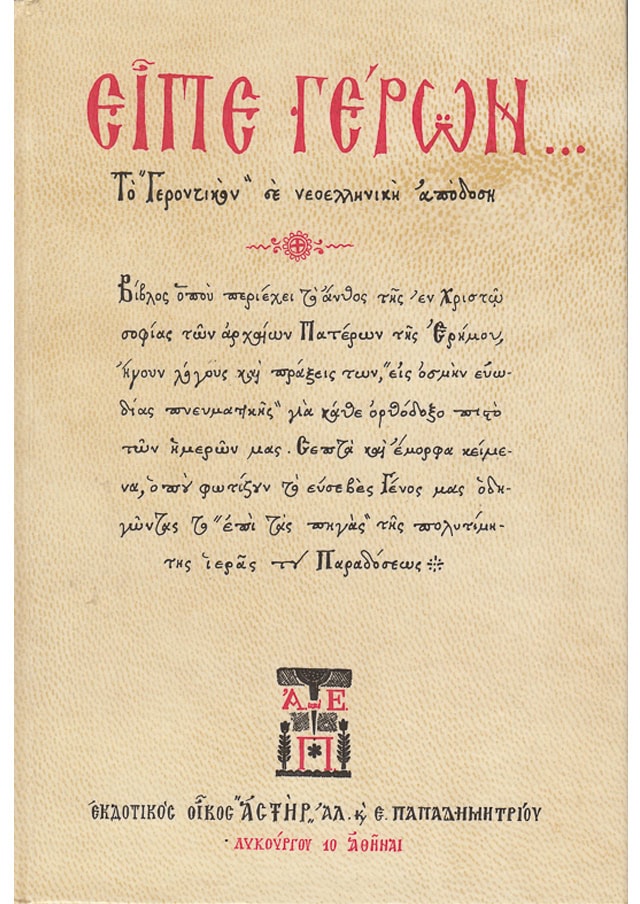 ΕἶΠΕ ΓΈΡΩΝ...
Τὸ "Γεροντικὸν" σὲ νεοελληνικὴ ἀπόδοση
Βίβλος ὁποὺ περιέχει τὸ ἄνθος τῆς ἐν Χριστῷ
σοφίας τῶν ἀρχαίων Πατέρων τῆς Ἐρήμου,
ἤγουν λόγους καὶ πράξεις των, "εἰς ὀσμὴν εὐω-
δίας πνευματικῆς" γιὰ κάθε ὀρθόδοξο πιστὸ
τῶν ἡμερῶν μας. Σεπτὰ καὶ ἔμορφα κείμε-
να, ὁποὺ φωτίζουν τὸ εὐσεβὲς Γένος μας ὁδη-
γῶντας το "ἐπὶ τὰς πηγὰς" τῆς πολυτίμη-
της ἱερᾶς του Παραδόσεως
Ἀ. Ε.
Π
ἐΚΔΟΤΙΚῸΣ ΟἶΚΟΣ "ἈΣΤῊΡ" ἈΛ. κ̀ Ε. ΠΑΠΑΔΗΜΗΤΡΙΟΥ
ΛΥΚΟΥΡΓΟΥ 10 ἈΘΗ͂ΝΑΙ